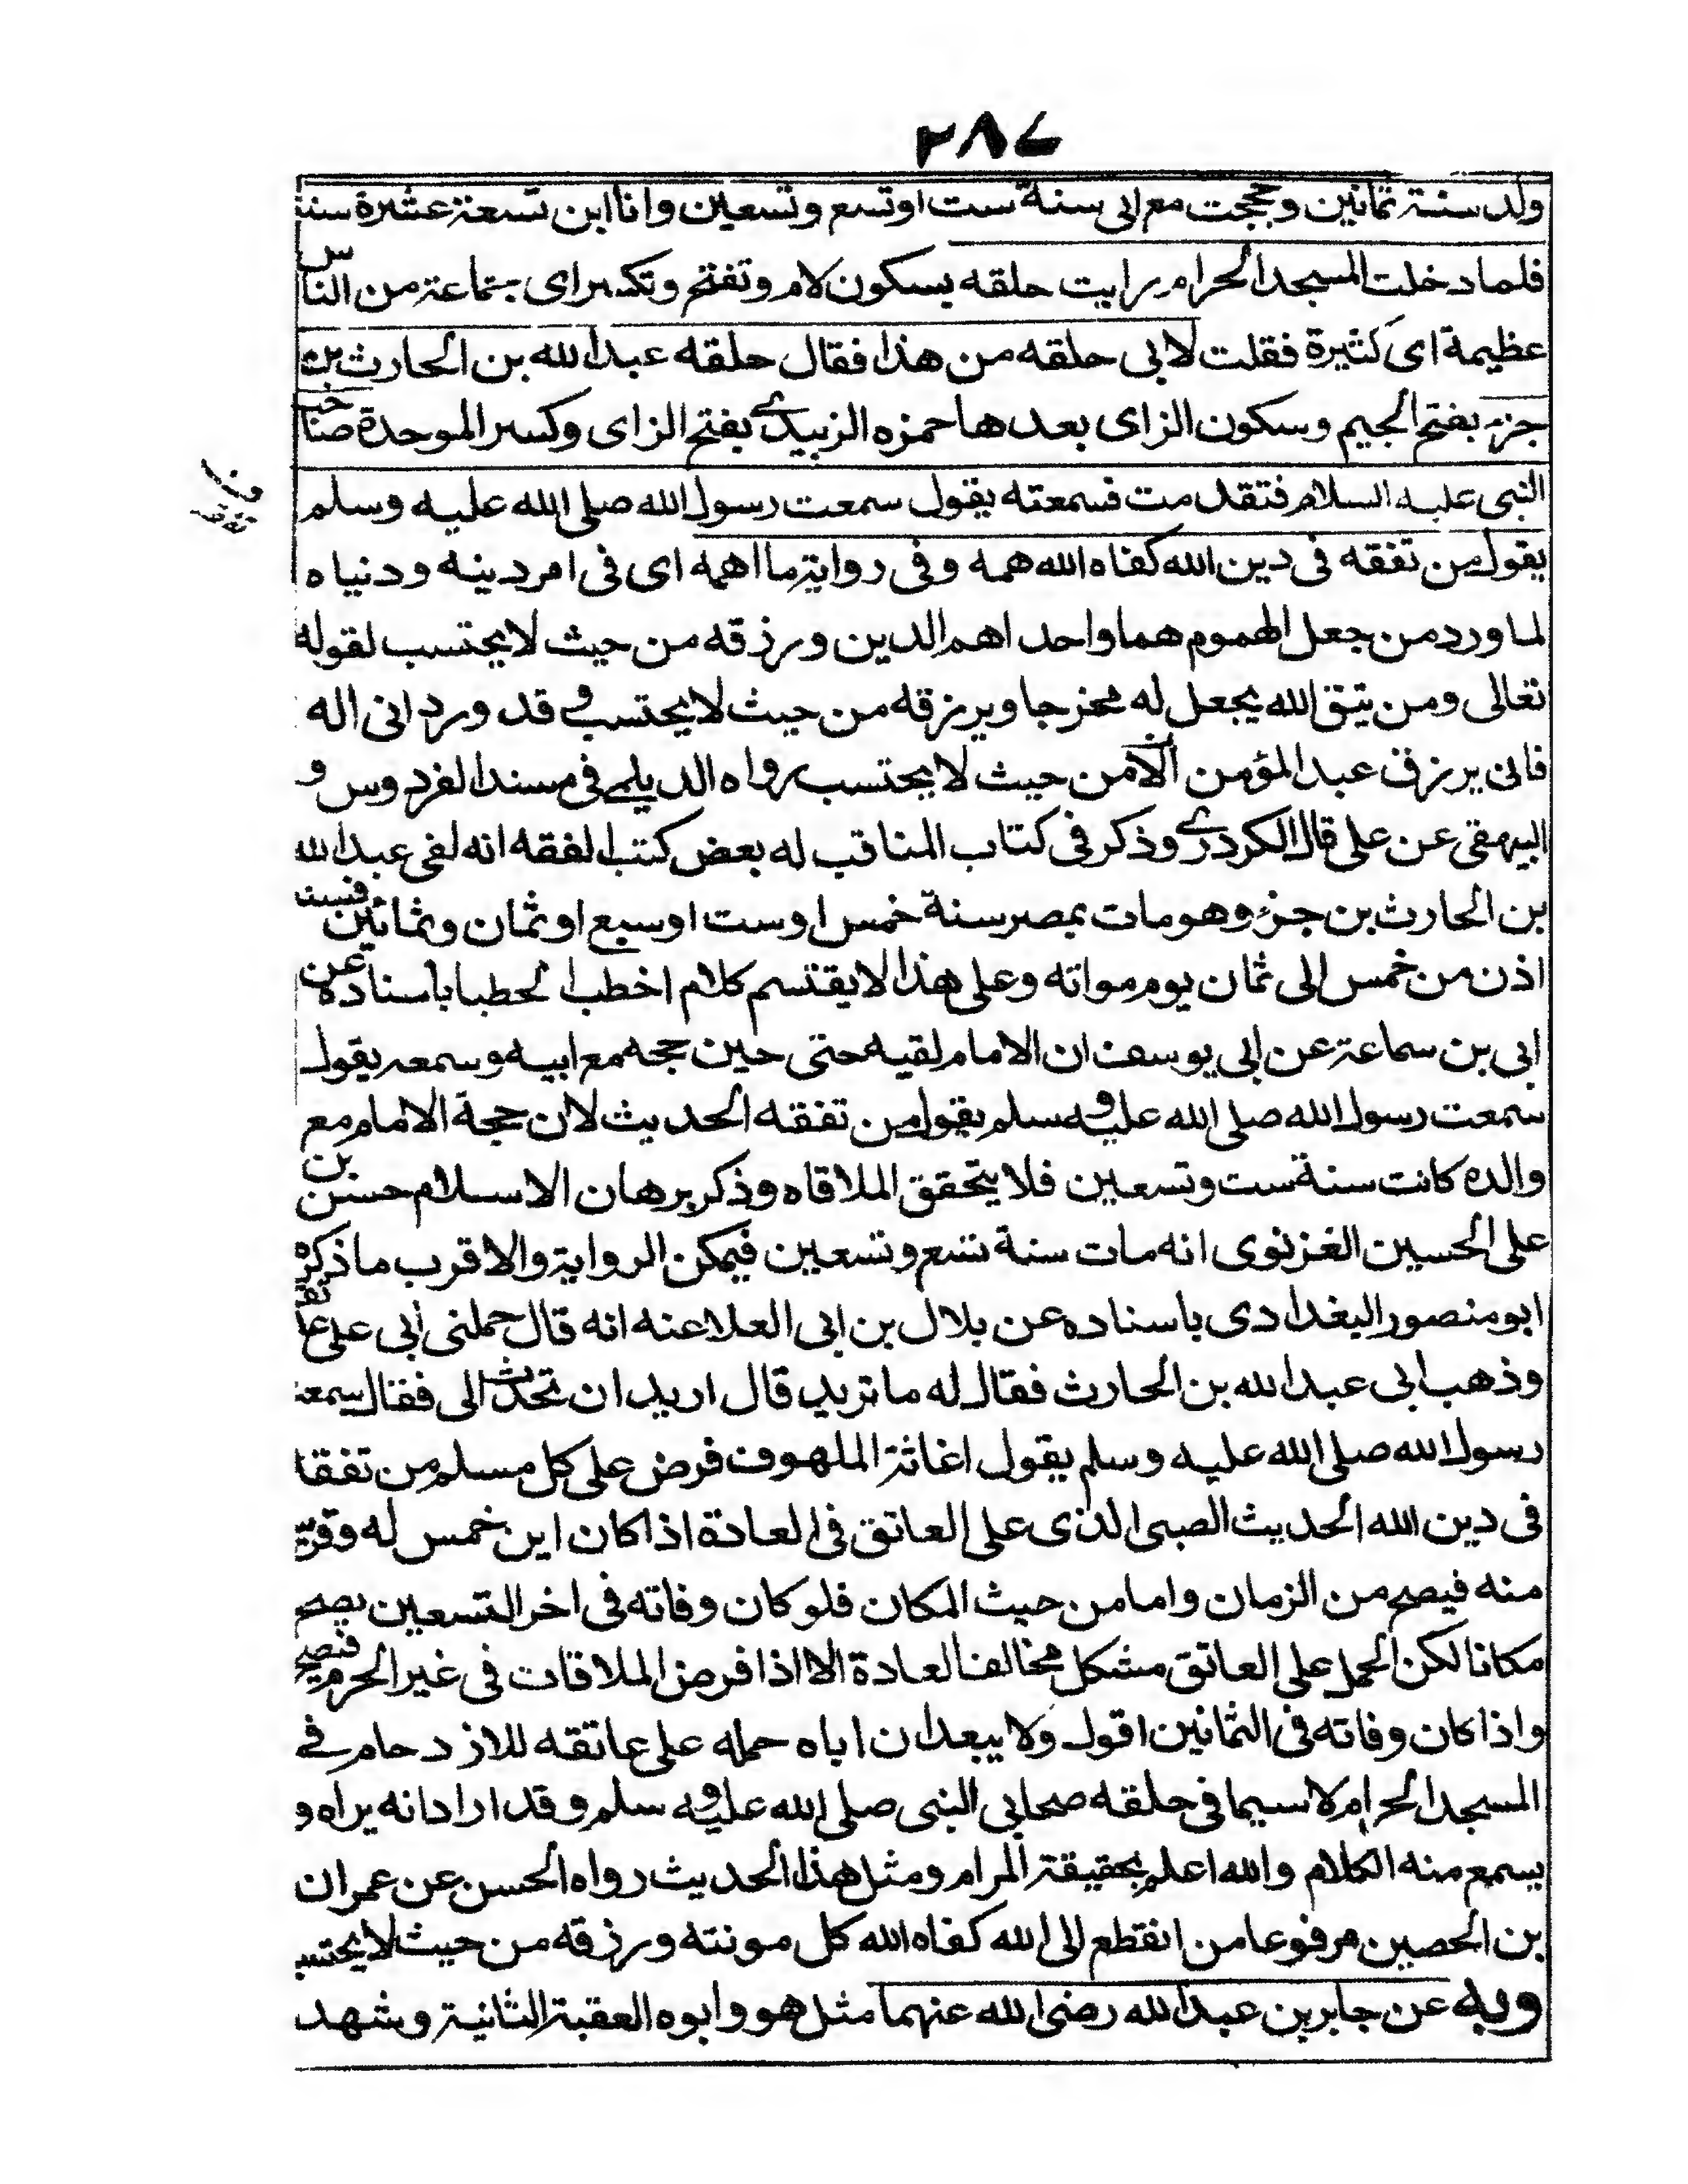 ٢٨٧
ولد سنة ثمانين وحججت مع ابى سنة ست اوتسع وتسعين وانا ابن تسعة عشرة سنة
فلما دخلت المسجد الحرام رايت حلقه بسكون لام وتفتح وتكسر اى جماعة من الناس
عظيمة اى كثيرة فقلت لابى حلقه من هذا فقال حلقه عبدالله بن الحارث بن
جزء بفتح الجيم وسكون الزاى بعدها حمزه الزبيدى بفتح الزاى وكسر الموحدة صاحب
النبى عليه السلام فتقدمت فسمعته يقول سمعت رسول الله صلى الله عليه وسلم
يقول من تفقه فى دين الله كفاه الله همه وفى رواية ما اهمه اى فى امر دينه ودنياه
لما ورد من جعل الهموم هما واحدا هم الدين ورزقه من حيث لا يحتسب لقوله
تعالى ومن يتق الله يجعل له مخرجا ويرزقه من حيث لا يحتسب و قد ورد انى اله
فانى يرزق عبد المؤمن الامن حيث لا يحتسب رواه الديلمى فى مسند الفردوس و
البيهقى عن على قال الكردرى وذكر فى كتاب المناقب له بعض كتب الفقه انه لقى عبد الله
بن الحارث بن جزء وهو مات بمصر سنة خمس اوست اوسبع اوثمان وثمانين فنست
اذن من خمس الى ثمان يوم مواته وعلى هذا لايقتسم كلام اخطب الخطبا باسناده عن
ابى بن سماعة عن ابى يوسف ان الامام لقيه حتى حين حجه مع ابيه وسمعه يقول
سمعت رسول الله صلى الله عليه وسلم يقول من تفقه الحديث لان حجة الامام مع
والده كانت سنة ست وتسعين فلا يتحقق الملاقاه وذكر برهان الاسلام حسن بن
على الحسين الغزنوى انه مات سنة تسع وتسعين فيمكن الرواية والاقرب ما ذكره
ابو منصور البغدادى باسناده عن بلال بن ابى العلا عنه انه قال حملنى أبى على عاتقه
وذهب ابى عبد الله بن الحارث فقال له ما تريد قال اريد ان تحديث الى فقال سمعت
رسول الله صلى الله عليه وسلم يقول اغاثة الملهوف فرض على كل مسلم من تفقا
فى دين الله الحديث الصبى الذى على العاتق فى العادة اذا كان ابن خمس له وقريب
منه فيصح من الزمان واما من حيث المكان فلو كان وفاته فى اخر التسعين يصح
مكانا لكن الحمل على العاتق مشكل مخالف العادة الا اذا فرض الملاقات فى غير الحرم فتصح
واذا كان وفاته فى الثمانين اقول ولا يبعد ان اباه حمله على عاتقه للازدحام فى
المسجد الحرام لا سيما فى حلقه صحابى النبى صلى الله عليه وسلم وقد اراد انه يراه و
يسمع منه الكلام والله اعلم بحقيقة المرام ومثل هذا الحديث رواه الحسن عن عمران
بن الحصين مرفوعا من انقطع الى الله كفاه الله كل مونته ورزقه من حيث لا يحتسب
وبه عن جابر بن عبدالله رضى الله عنهما مثل هو وابوه العقبة الثانية وشهد